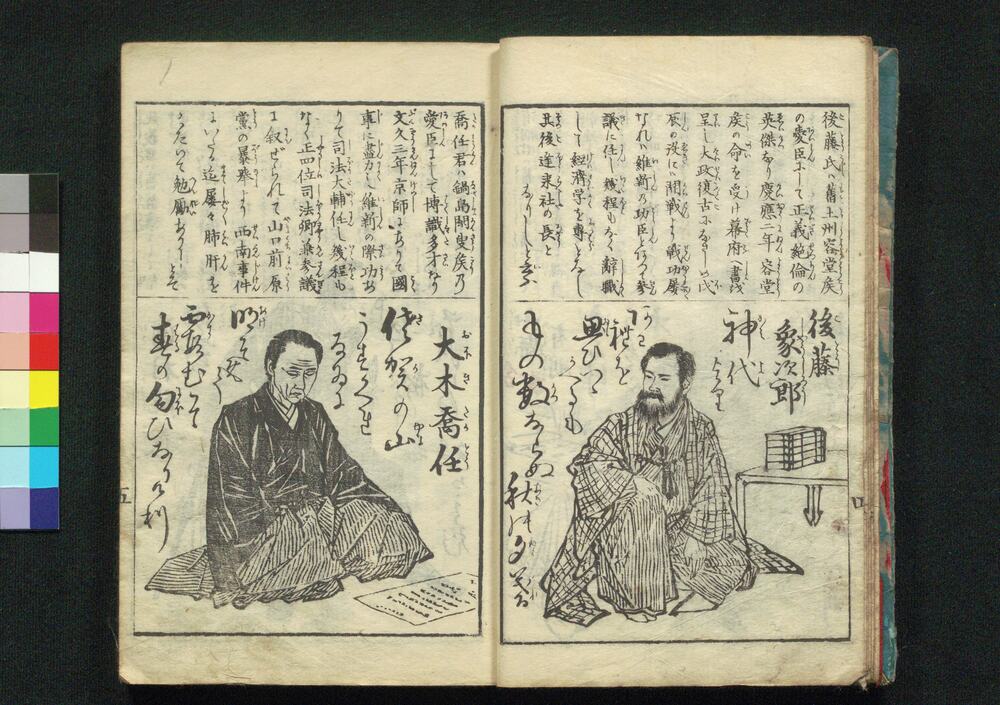 後藤氏ハ舊土州容堂矦
の愛臣にして正義絶倫の
英傑なり慶應二年容堂
矦の命を受け幕府へ書を
呈し大政復古になりしハ戊
辰の役に開戦より戦功屡
なれハ維新の功臣となりて参
議に任し幾程もなく辞職
して経済学を専とふし
其後逢来社の長と
なりしと云ふ
後藤
象次郎
神代より
思ひつゝくるも
ものゝ数ならぬ
秋の夕暮
四
喬任君ハ鍋島閑叟矦乃
愛臣にして博識多才なり
文久三年京師にありて國
事に盡力し維新の際功あ
りて司法大輔任し幾程も
なく正四位司法卿兼参議
に叙せられて山口前原
黨の暴挙より西南事件
にいたる迄屡々肺肝を
くたいて勉勵ありしとそ
大木喬任
佐賀の山
うすくれ
なゐに
明そめて
霞むそ
春の匂ひなりけれ
五